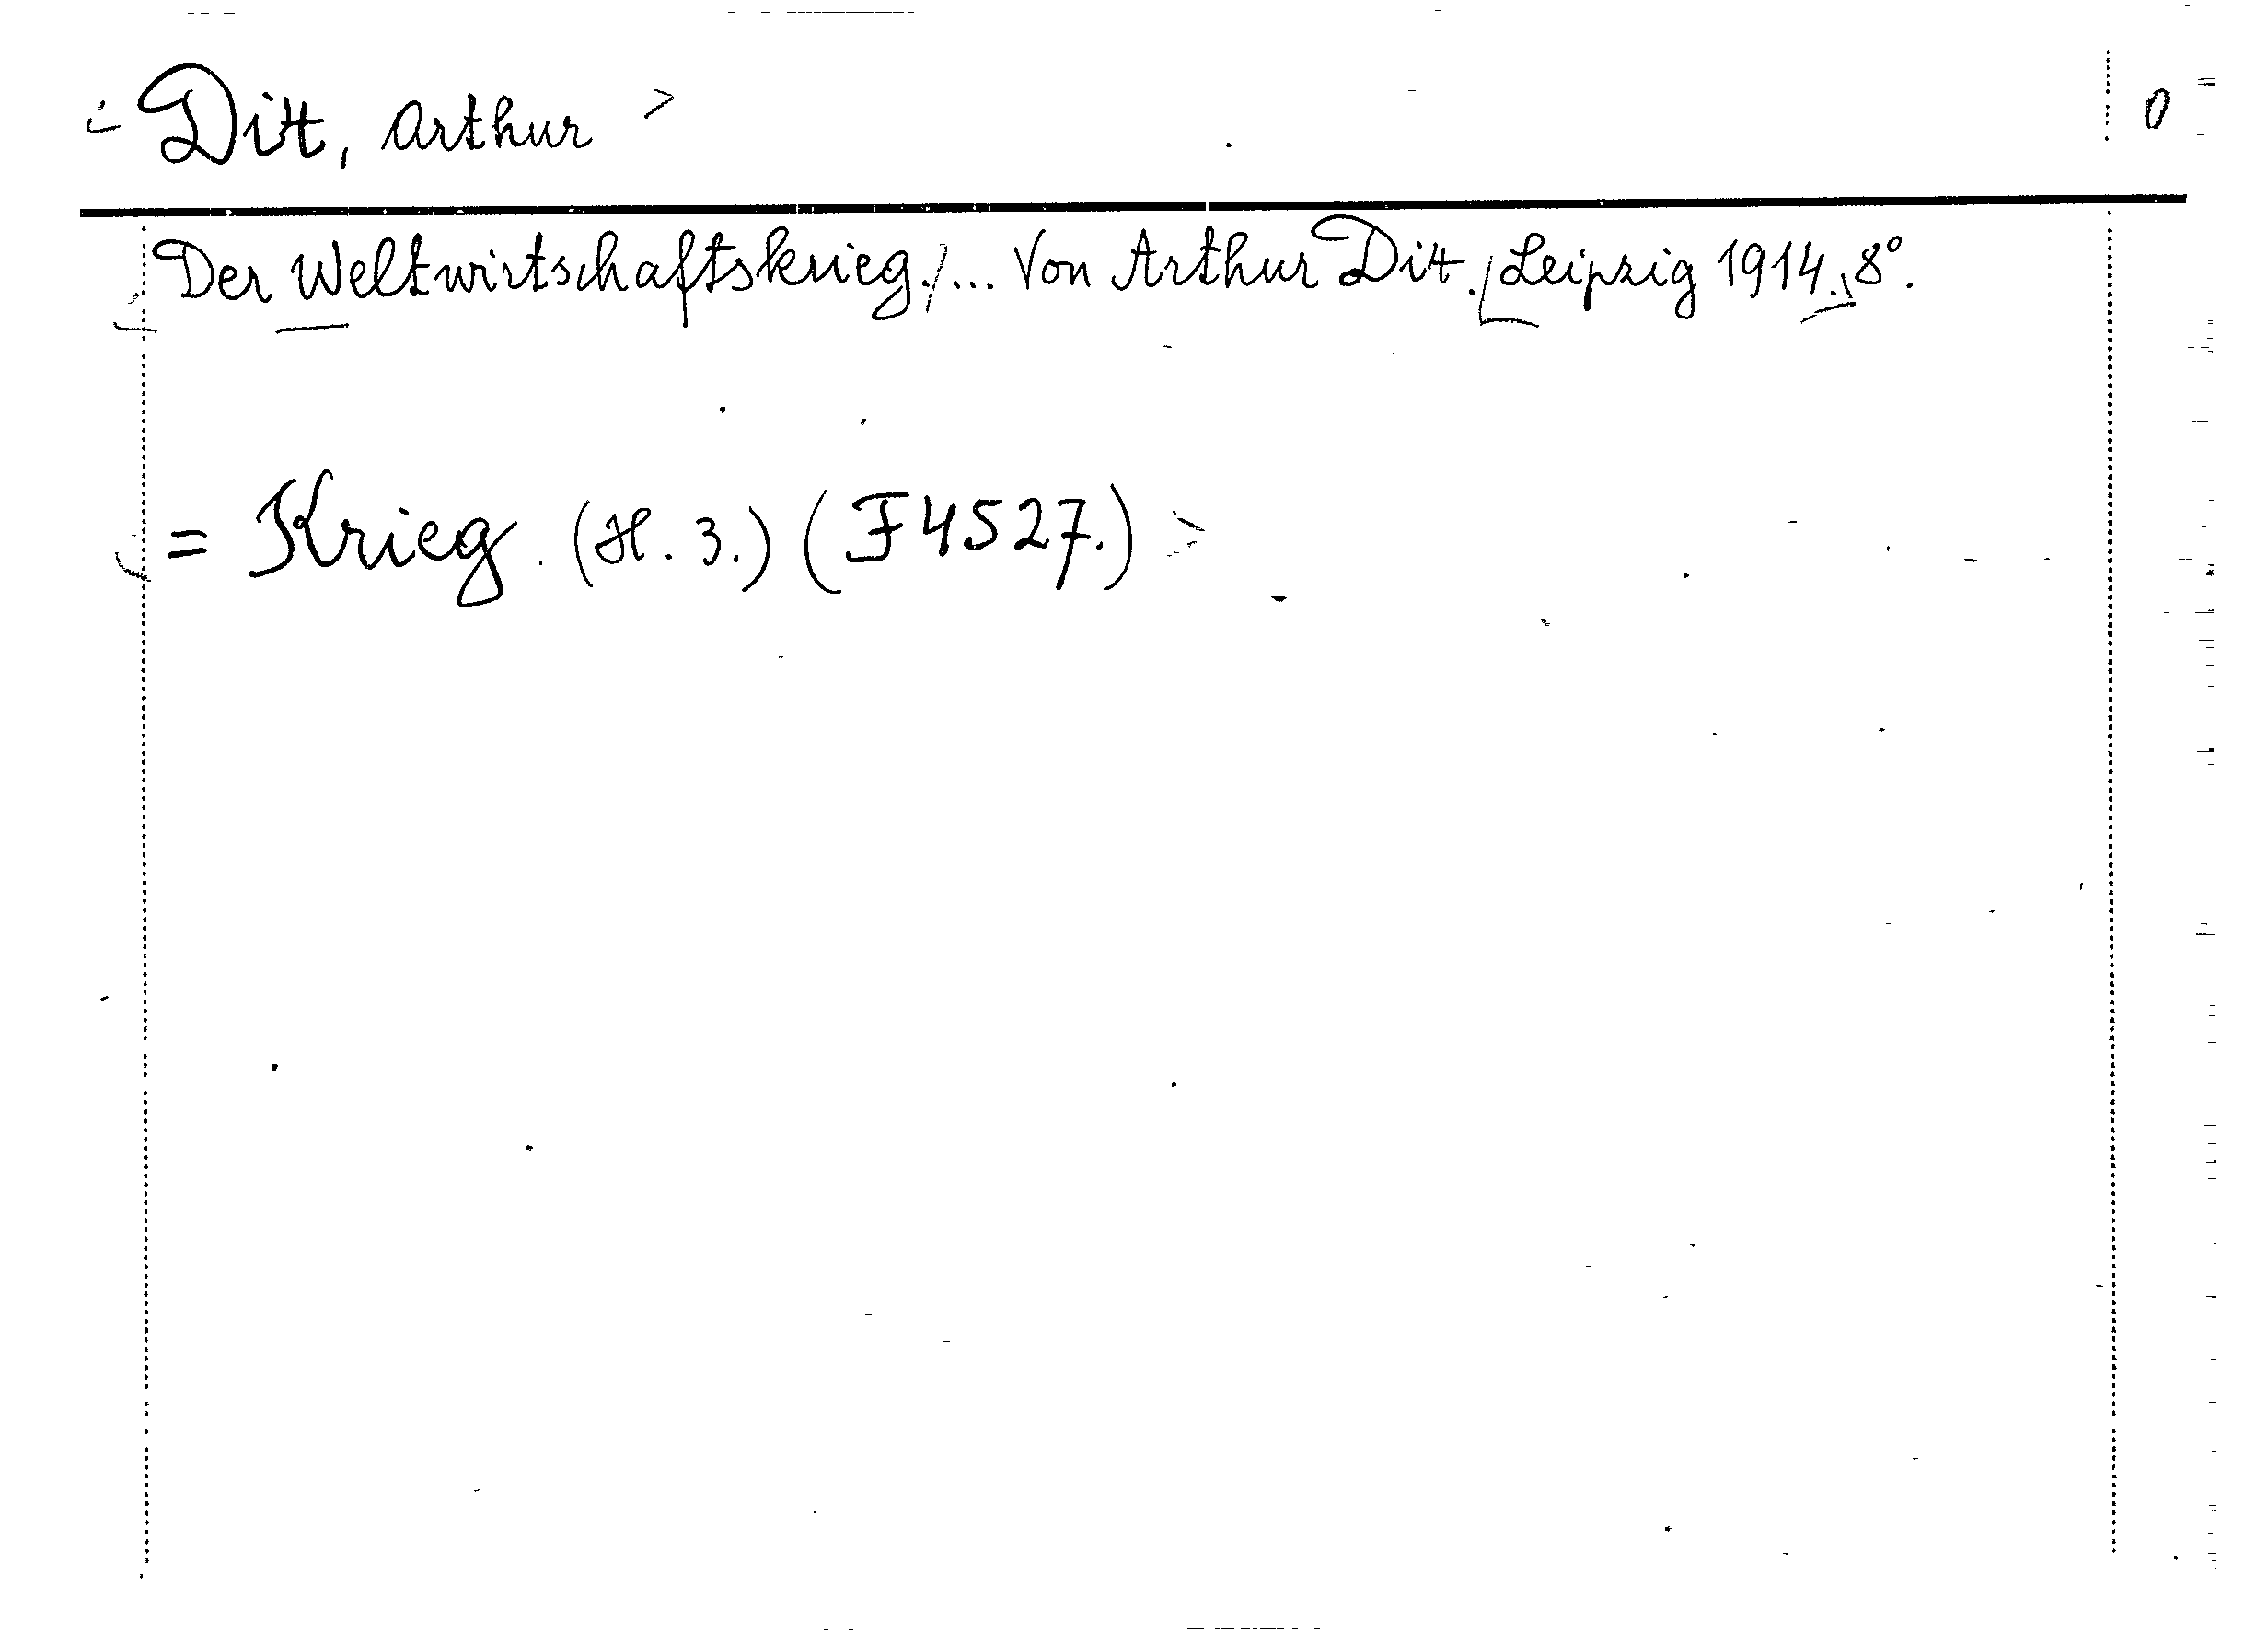 <Dix, Arthur> 0
Der Weltwirtschaftskrieg./... Von Arthur Dix. [Leipzig 1914.] 8°.
<= Krieg. (H. 3.) (F 4527.)>